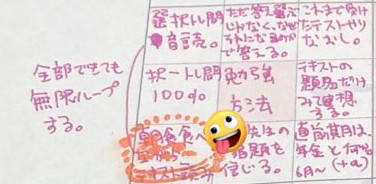 選択トレ問
音読。
ただ答え選ぶ
じゃなく、なぜ
それになるのか
で答える。
これまで受け
たテストやり
なおし。
全部できても
無限ループ
する。
択一トレ問
100%
勉強
方法
テキストの
題名だけ
みて連想
する。
朝食食べ
ながら
テキスト読み
先生の
指顕を
信じる。
直前期は、
年金と
6月〜(+α)